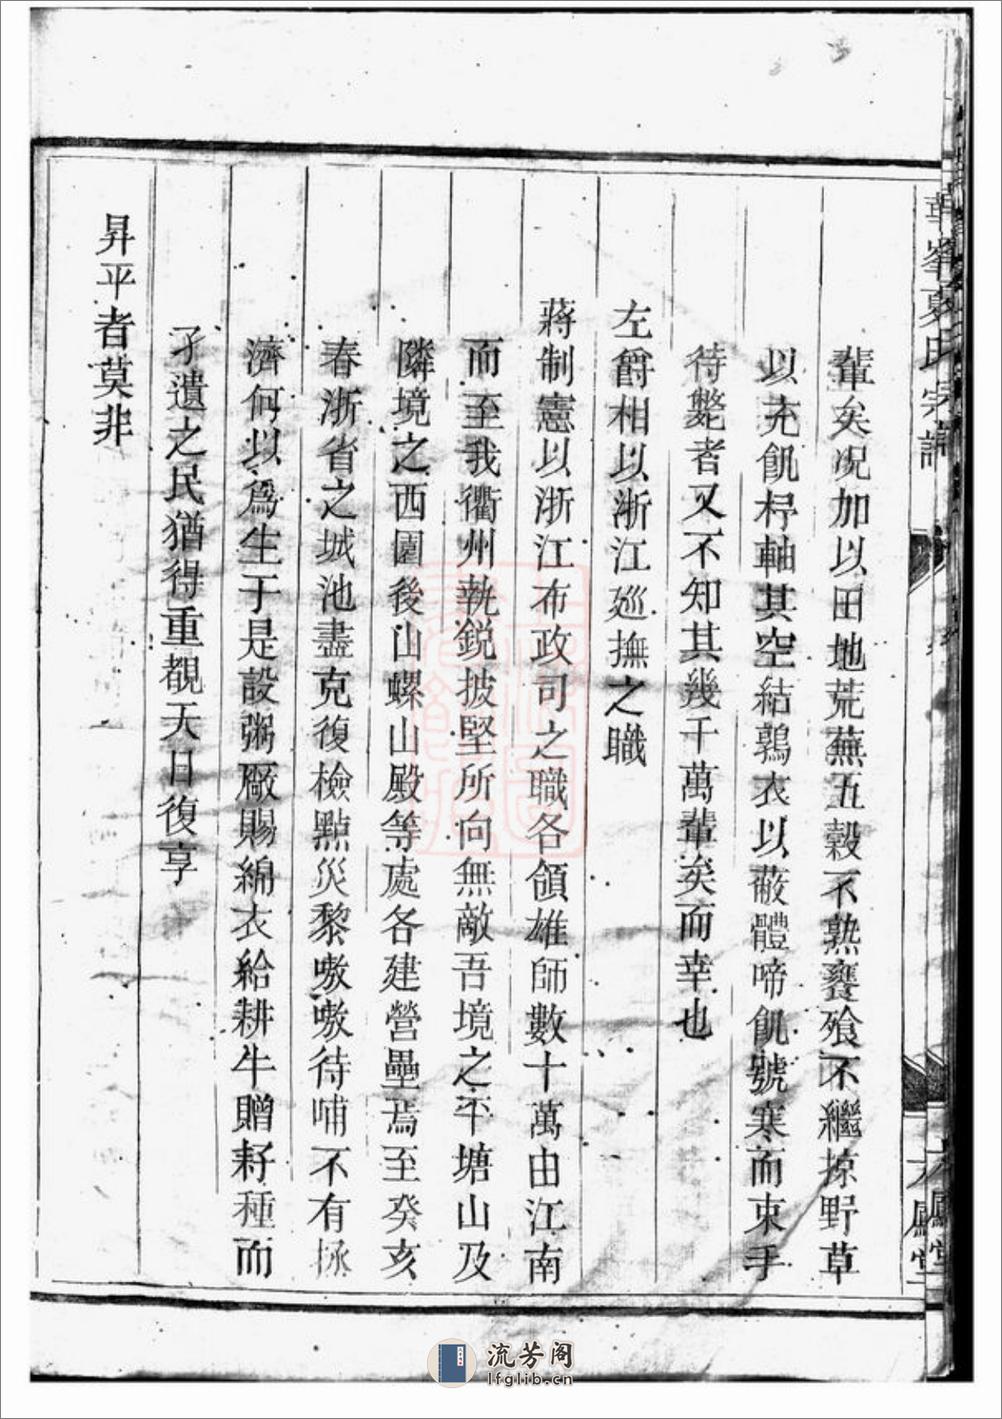 華峯夏氏宗譜
六鳳堂
輩矣况加以田地荒蕪五穀不熟饔飧不繼掠野草
以充飢杼軸其空結鶉衣以蔽體啼飢號寒而束手
待斃者又不知其幾千萬輩矣而幸也
左爵相以浙江廵撫之職
蔣制憲以浙江布政司之職各領雄師數十萬由江南
而至我衢州執鋭披堅所向無敵吾境之平塘山及
隣境之西園後山螺山殿等處各建營壘焉至癸亥
春浙省之城池盡克復檢點災黎嗷嗷待哺不有拯
濟何以爲生于是設粥廠賜綿衣給耕牛贈籽種而
孑遺之民猶得重覩天日復享
昇平者莫非
流芳阁
lfglib.cn